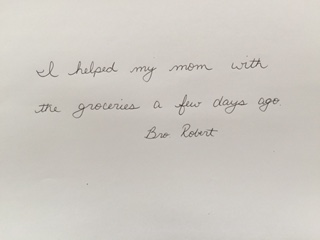 I helped my mom with
the groceries a few days ago.
Bro Robert